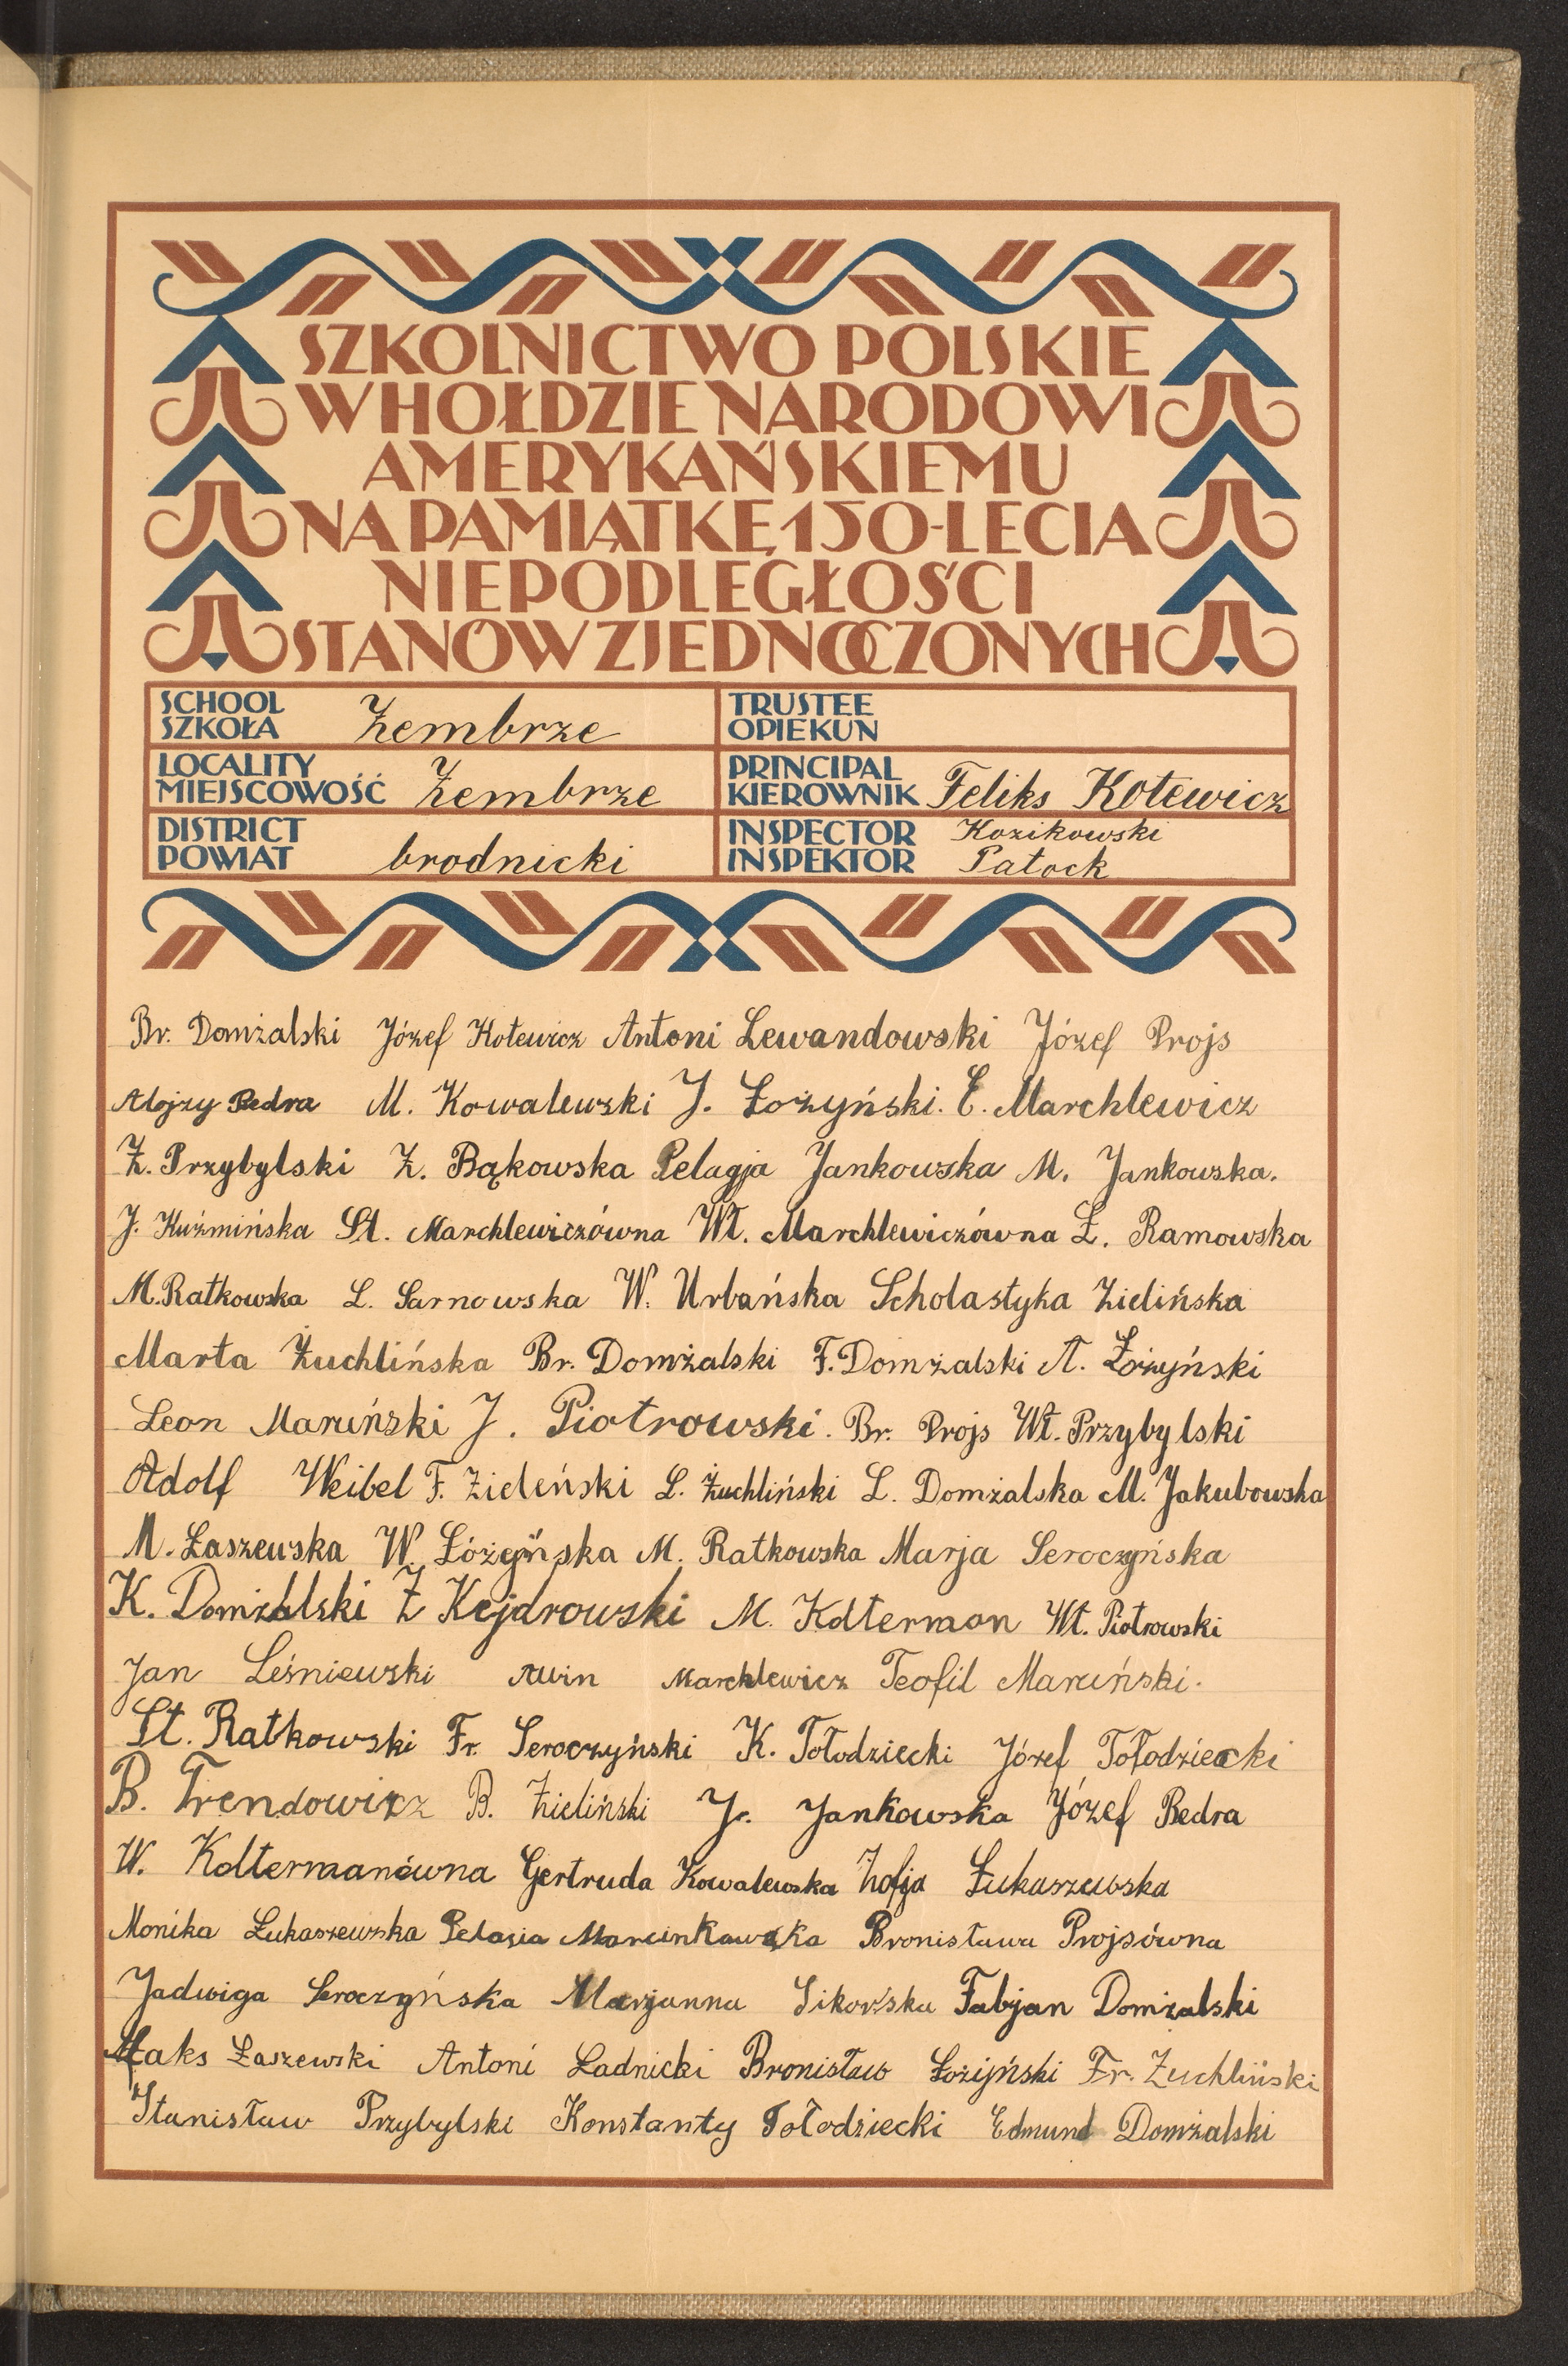 SZKOLNICTWO POLSKIE
W HOŁDZIE NARODOWI
AMERYKAŃSKIEMU
NA PAMIĄTKĘ 150-LECIA
NIEPODLEGŁOŚCI
STANÓW ZJEDNOCZONYCH
SCHOOL
SZKOŁA Zembrze
TRUSTEE
OPIEKUN
LOCALITY
MIEJSCOWOŚĆ Zembrze
PRINCIPAL
KIEROWNIK Feliks Kotewicz
DISTRICT
POWIAT brodnicki
INSPECTOR Kozikowski
INSPEKTOR Patock
Br. Domżalski Józef Kotewicz Antoni Lewandowski Józef Projs
Alojzy Bedra M. Kowalewski J. Łożyński. E. Marchlewicz
Z. Przybylski Z. Bąkowska Pelagja Jankowska M. Jankowska.
J. Kuźmińska St. Marchlewiczówna Wł. Marchlewiczówna Ł. Ramowska
M. Ratkowska L. Sarnowska W. Urbańska Scholastyka Zielińska
Marta Żuchlińska Br. Domżalski F. Domżalski A. Łożyński
Leon Maruński J. Piotrowski. Br. Projs Wł. Przybylski
Adolf Weibel F. Zieleński L. Żuchliński L. Domżalska M. Jakubowska
M. Łaszewska W. Łóżyńska M. Ratkowska Marja Seroczyńska
K. Domżalski Z Kejdrowski M. Kolterman Wł. Piotrowski
Jan Leśniewski Alwin Marchlewicz Teofil Maruński.
St. Ratkowski Fr. Seroczyński K. Tołodziecki Józef Tołodziecki
B. Trendowicz B. Zieliński Jr. Jankowska Józef Bedra
W. Koltermanówna Gertruda Kowalewska Zofja Łukaszewska
Monika Łukaszewska Pelasia Marcinkawska Bronisława Projsówna
Jadwiga Seroczyńska Marjanna Sikorska Fabjan Domżalski
Maks Łaszewski Antoni Ładnicki Bronisław Łożyński Fr. Żuchliński
Stanisław Przybylski Konstanty Tołodziecki Edmund Domżalski